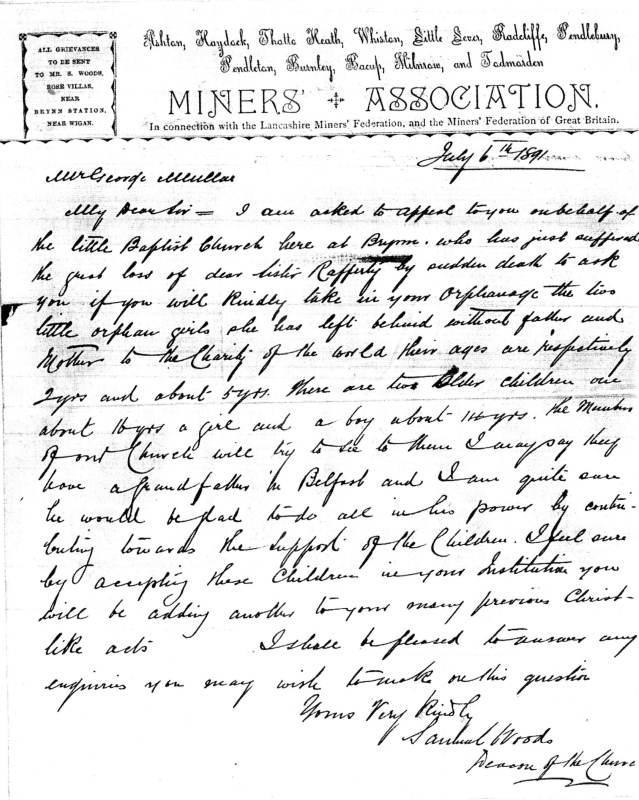 ALL GRIEVANCES
TO BE SENT
TO MR. S. WOODS,
ROSE VILLAS,
NEAR
BRYNN STATION,
NEAR WIGAN.
Ashton, Haydock, Thatto Heath, Whiston, Little Lever, Radcliffe, Pendlebury,
Pendleton, Burnley, Bacup, Milnrow, and Todmorden
MINERS' ASSOCIATION.
In connection with the Lancashire Miners' Federation, and the Miners' Federation of Great Britain.
July 6th 1891
Mr George Mullar
My Dear Sir = I am asked to appeal to you on behalf of
the little Baptist Church here at Brynn. who has just suffered
the great loss of dear sister Rafferty by sudden death to ask
you if you will kindly take in your Orphanage the two
little orphan girls she has left behind without father and
Mother to the Charity of the world their ages are respectively
2 yrs and about 5 yrs. There are two Older children one
about 16 yrs a girl and a boy about 14 yrs. the Members
of our Church will try to see to them I may say they
have a Grandfather in Belfast and I am quite sure
he would be glad to do all in his power by contri-
buting towards the support of the Children. I feel sure
by accepting these Children in your Institution you
will be adding another to your many previous Christ-
like acts I shall be pleased to answer any
enquiries you may wish to make on this question
Yours Very Kindly
Samuel Woods
Deacon of the Church